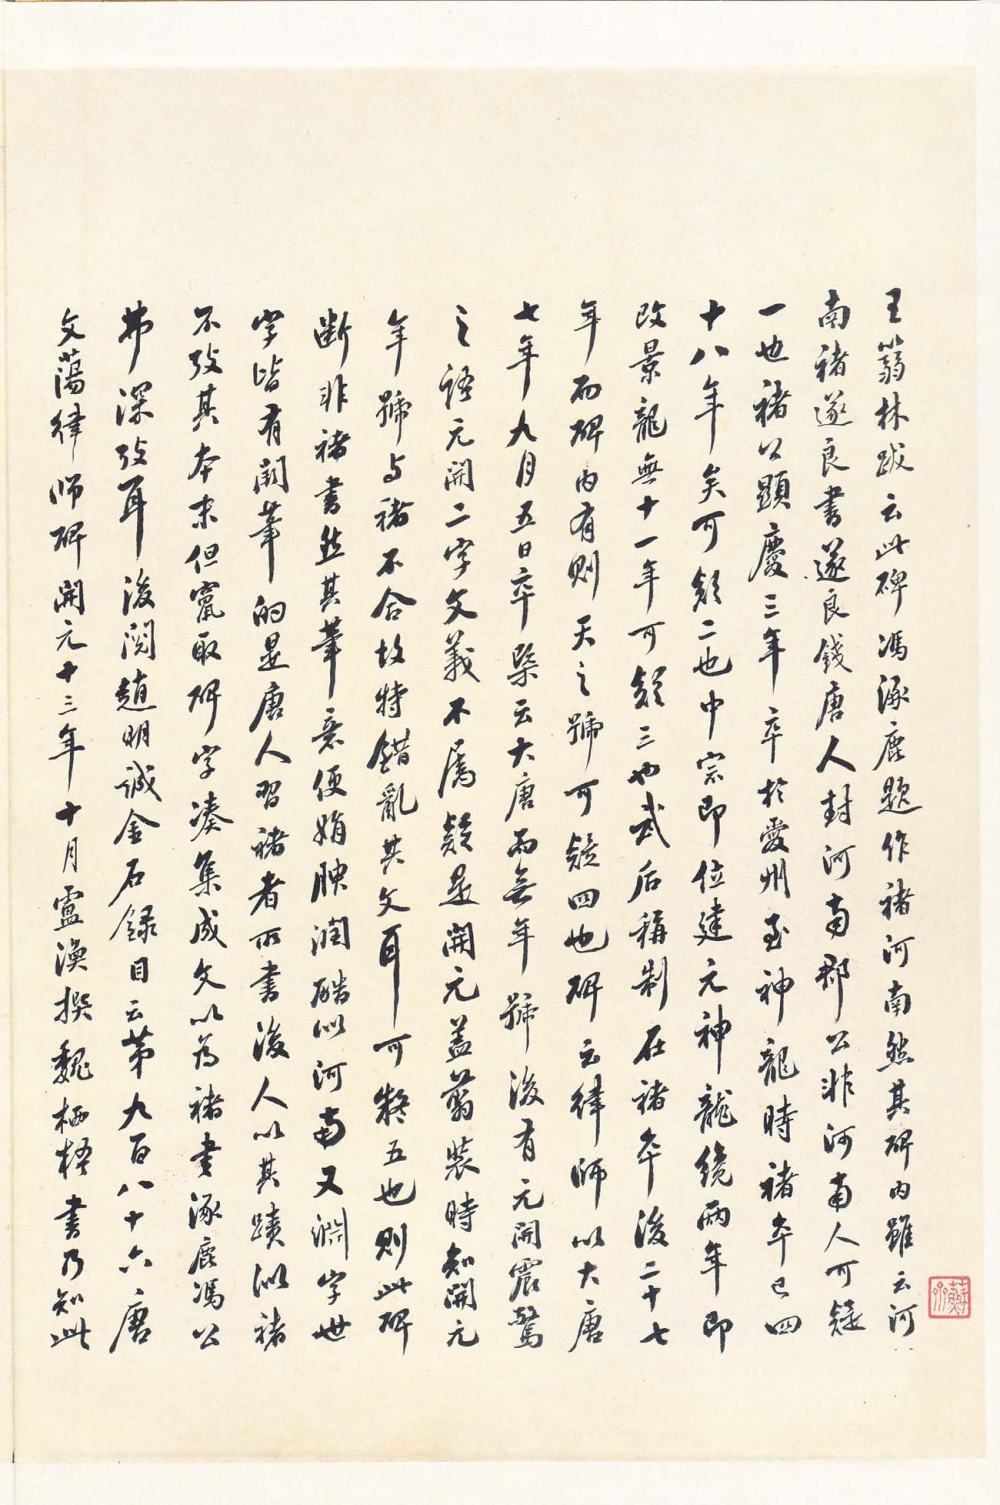 王蒻林跋云此碑馮涿鹿題作褚河南然其碑内雖云河
南褚遂良書遂良錢唐人封河南郡公非河南人可疑
一也褚公顯慶三年卒於愛州至神龍時褚卒已四
十八年矣可疑二也中宗即位建元神龍纔兩年即
改景龍無十一年可疑三也武后稱制在褚卒後二十七
年而碑内有則天之號可疑四也碑云律師以大唐
七年九月五日卒槩云大唐而無年號後有元開震驚
之語元開二字文義不屬疑是開元蓋翦裝時知開元
年號与褚不合故特錯亂其文耳可疑五也則此碑
斷非褚書然其筆意便娟腴潤酷似河南又淵字世
字皆有闕筆的是唐人習褚者所書後人以其蹟似褚
不攷其本末但竄取碑字湊集成文以為褚書涿鹿馮公
弗深攷耳後閱趙明誠金石錄目云第九百八十六唐
文蕩律師碑開元十三年十月盧渙撰魏栖梧書乃知此